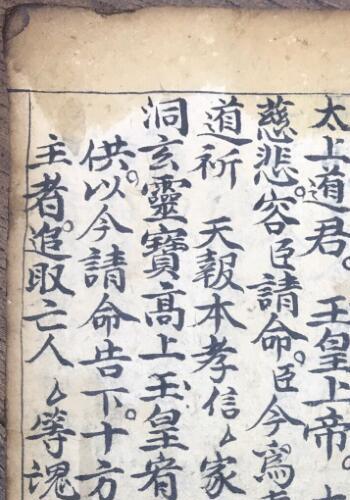 太上道君。玉皇上帝。
慈悲。容臣請命。臣今為
道祈 天報本孝信厶家
洞玄靈寶高上玉皇宥
供。以今請命告下。十方
主者。追取亡人厶等魂